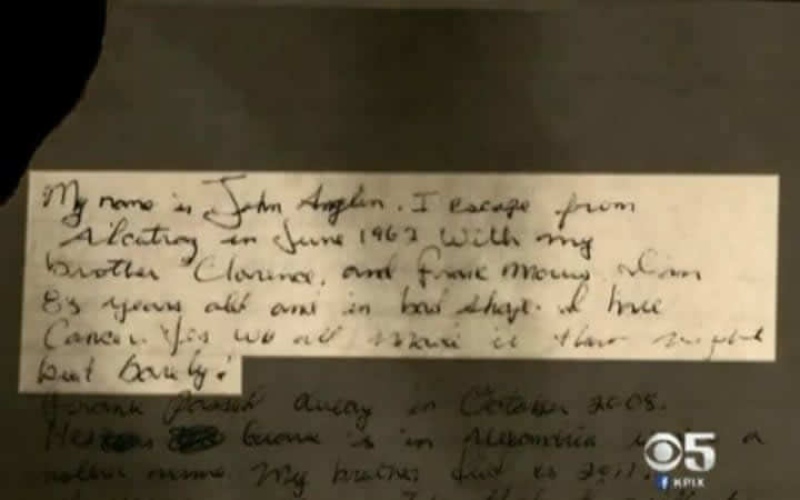 My name is John Anglin. I escape from
Alcatraz in June 1962 with my
brother Clarence, and Frank Morris. I'm
83 years old and in bad shape. I have
Cancer. Yes we all made it that night
but barely!
Frank passed away in October 2008.
His grave is in Alexandria under a
nother name. My brother died in 2011.
5
KPIX